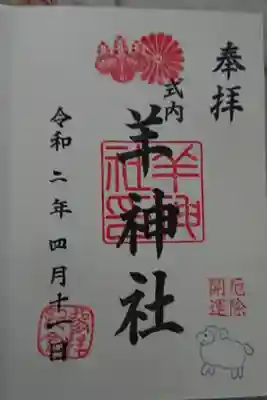 奉拝
式内
羊神社
羊神社之印
厄除
開運
令和二年四月十一日